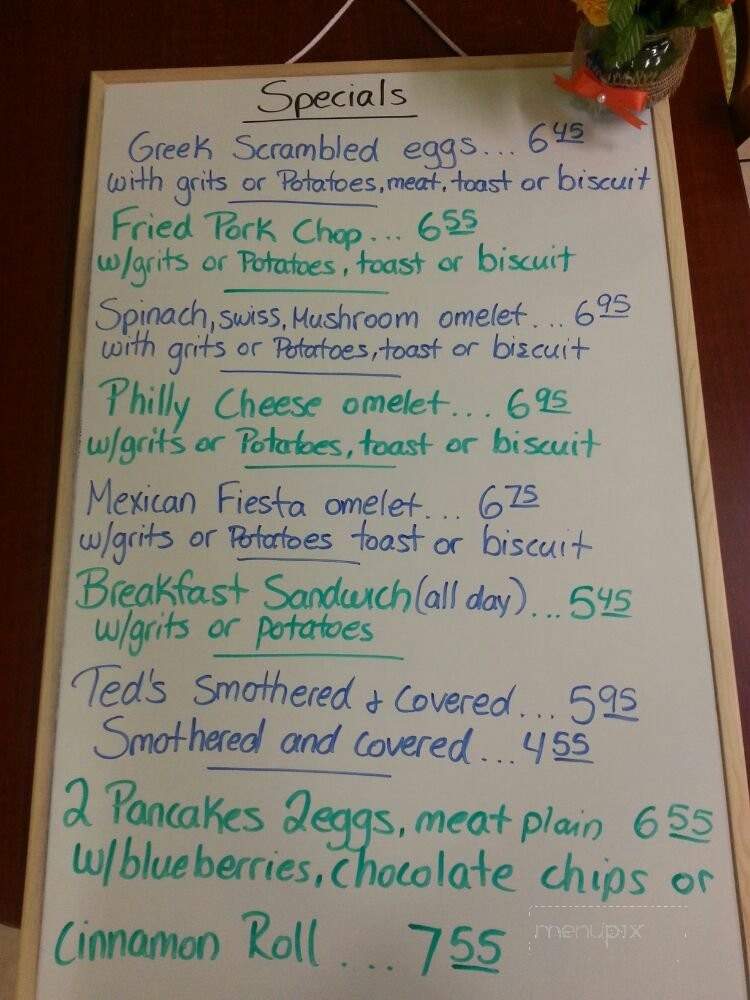 Specials
Greek Scrambled eggs... 6 45
with grits or Potatoes, meat, toast or biscuit
Fried Pork Chop... 6 55
w/grits or Potatoes, toast or biscuit
Spinach, swiss, Mushroom omelet... 6 95
with grits or Potatoes, toast or biscuit
Philly Cheese omelet... 6 95
w/grits or Potatoes, toast or biscuit
Mexican Fiesta omelet... 6 75
w/grits or Potatoes toast or biscuit
Breakfast Sandwich (all day)... 5 45
w/grits or potatoes
Ted's Smothered & Covered... 5 95
Smothered and covered... 4 55
2 Pancakes 2eggs, meat plain 6 55
w/blueberries, chocolate chips or
Cinnamon Roll .... 7 55
menupix